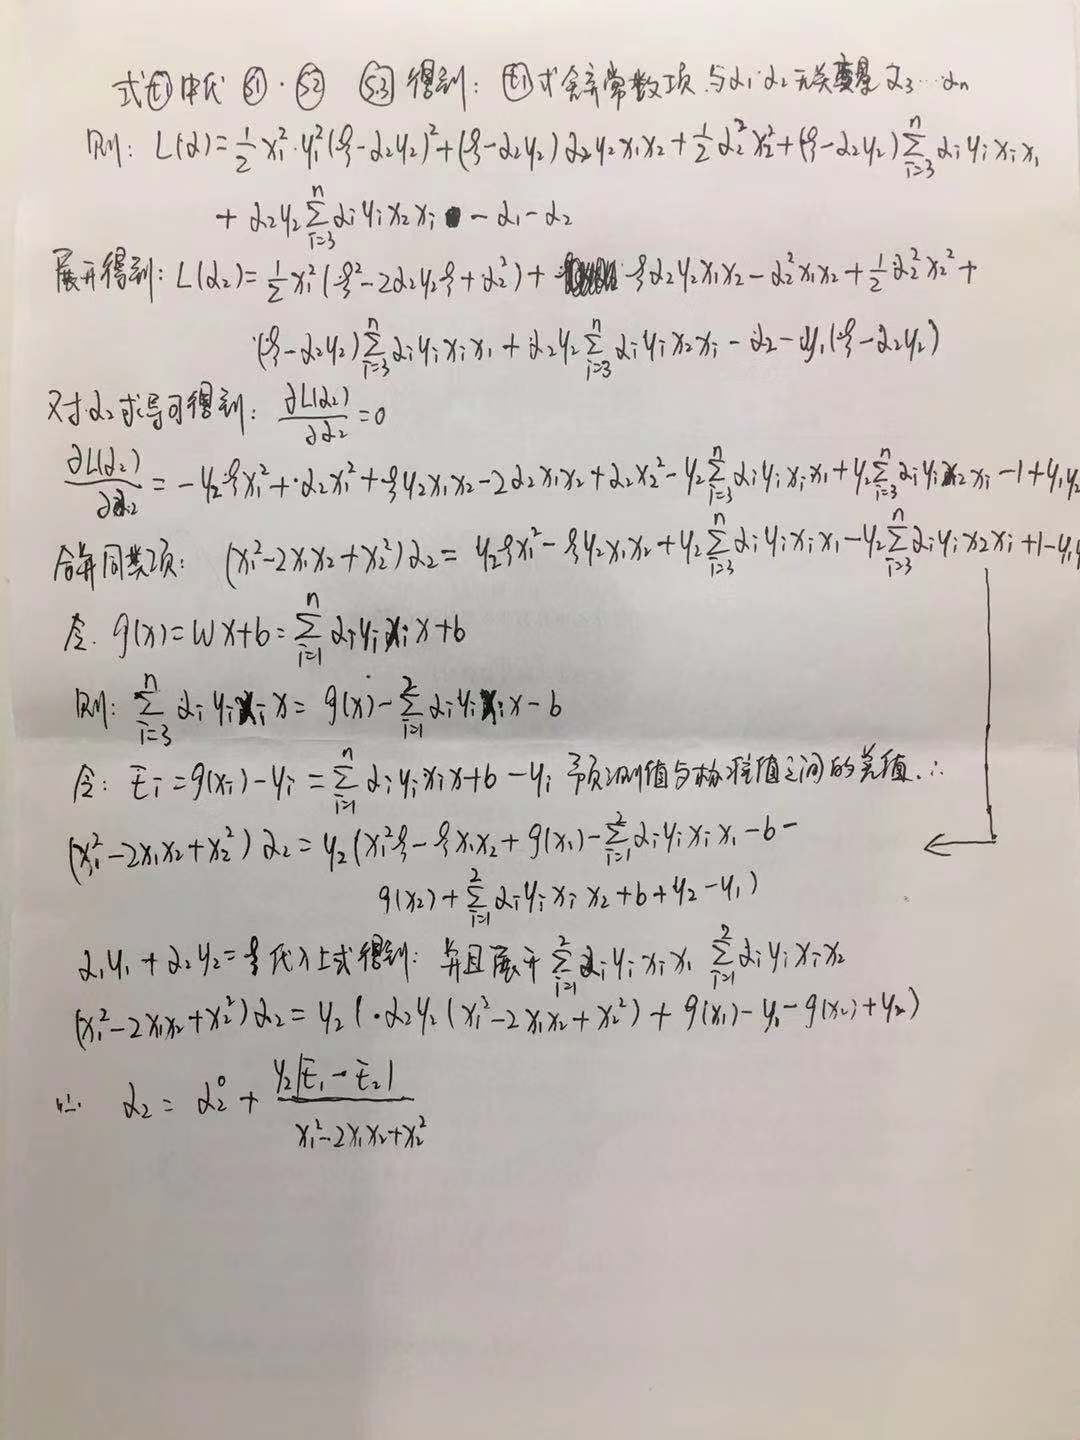 式①中代 S1 · S2 S3 得到: ①式舍弃常数项与α₁α₂无关变量α₃…αₙ
则: L(α)=½x₁²·y₁²(ξ-α₂y₂)²+(ξ-α₂y₂)α₂y₂x₁x₂+½α₂²x₂²+(ξ-α₂y₂)∑ⁿᵢ₌₃αᵢyᵢxᵢx₁
+α₂y₂∑ⁿᵢ₌₃αᵢyᵢx₂xᵢ -α₁-α₂
展开得到: L(α₂)=½x₁²(ξ²-2α₂y₂ξ+α₂²)+ ξα₂y₂x₁x₂-α₂²x₁x₂+½α₂²x₂²+
(ξ-α₂y₂)∑ⁿᵢ₌₃αᵢyᵢxᵢx₁+α₂y₂∑ⁿᵢ₌₃αᵢyᵢx₂xᵢ-α₂-y₁(ξ-α₂y₂)
对α₂求导可得到: ∂L(α₂)/∂α₂=0
∂L(α₂)/∂α₂=-y₂ξx₁²+·α₂x₁²+ξy₂x₁x₂-2α₂x₁x₂+α₂x₂²-y₂∑ⁿᵢ₌₃αᵢyᵢxᵢx₁+y₂∑ⁿᵢ₌₃αᵢyᵢx₂xᵢ-1+y₁y₂
合并同类项: (x₁²-2x₁x₂+x₂²)α₂=y₂ξx₁²-ξy₂x₁x₂+y₂∑ⁿᵢ₌₃αᵢyᵢxᵢx₁-y₂∑ⁿᵢ₌₃αᵢyᵢx₂xᵢ+1-y₁y
令. g(x)=wx+b=∑ⁿᵢ₌₁αᵢyᵢxᵢx+b
则: ∑ⁿᵢ₌₃αᵢyᵢxᵢx=g(x)-∑²ᵢ₌₁αᵢyᵢxᵢx-b
令: Eᵢ=g(xᵢ)-yᵢ=∑ⁿᵢ₌₁αᵢyᵢxᵢx+b-yᵢ 预测值与标准值之间的差值.∴
(x₁²-2x₁x₂+x₂²)α₂=y₂(x₁²ξ-ξx₁x₂+g(x₁)-∑²ᵢ₌₁αᵢyᵢxᵢx₁-b-
g(x₂)+∑²ᵢ₌₁αᵢyᵢxᵢx₂+b+y₂-y₁)
α₁y₁+α₂y₂=ξ代入上式得到: 并且展开∑²ᵢ₌₁αᵢyᵢxᵢx₁ ∑²ᵢ₌₁αᵢyᵢxᵢx₂
(x₁²-2x₁x₂+x₂²)α₂=y₂(·α₂y₂(x₁²-2x₁x₂+x₂²)+g(x₁)-y₁-g(x₂)+y₂)
∴ α₂=α₂⁰+y₂(E₁-E₂)/x₁²-2x₁x₂+x₂²